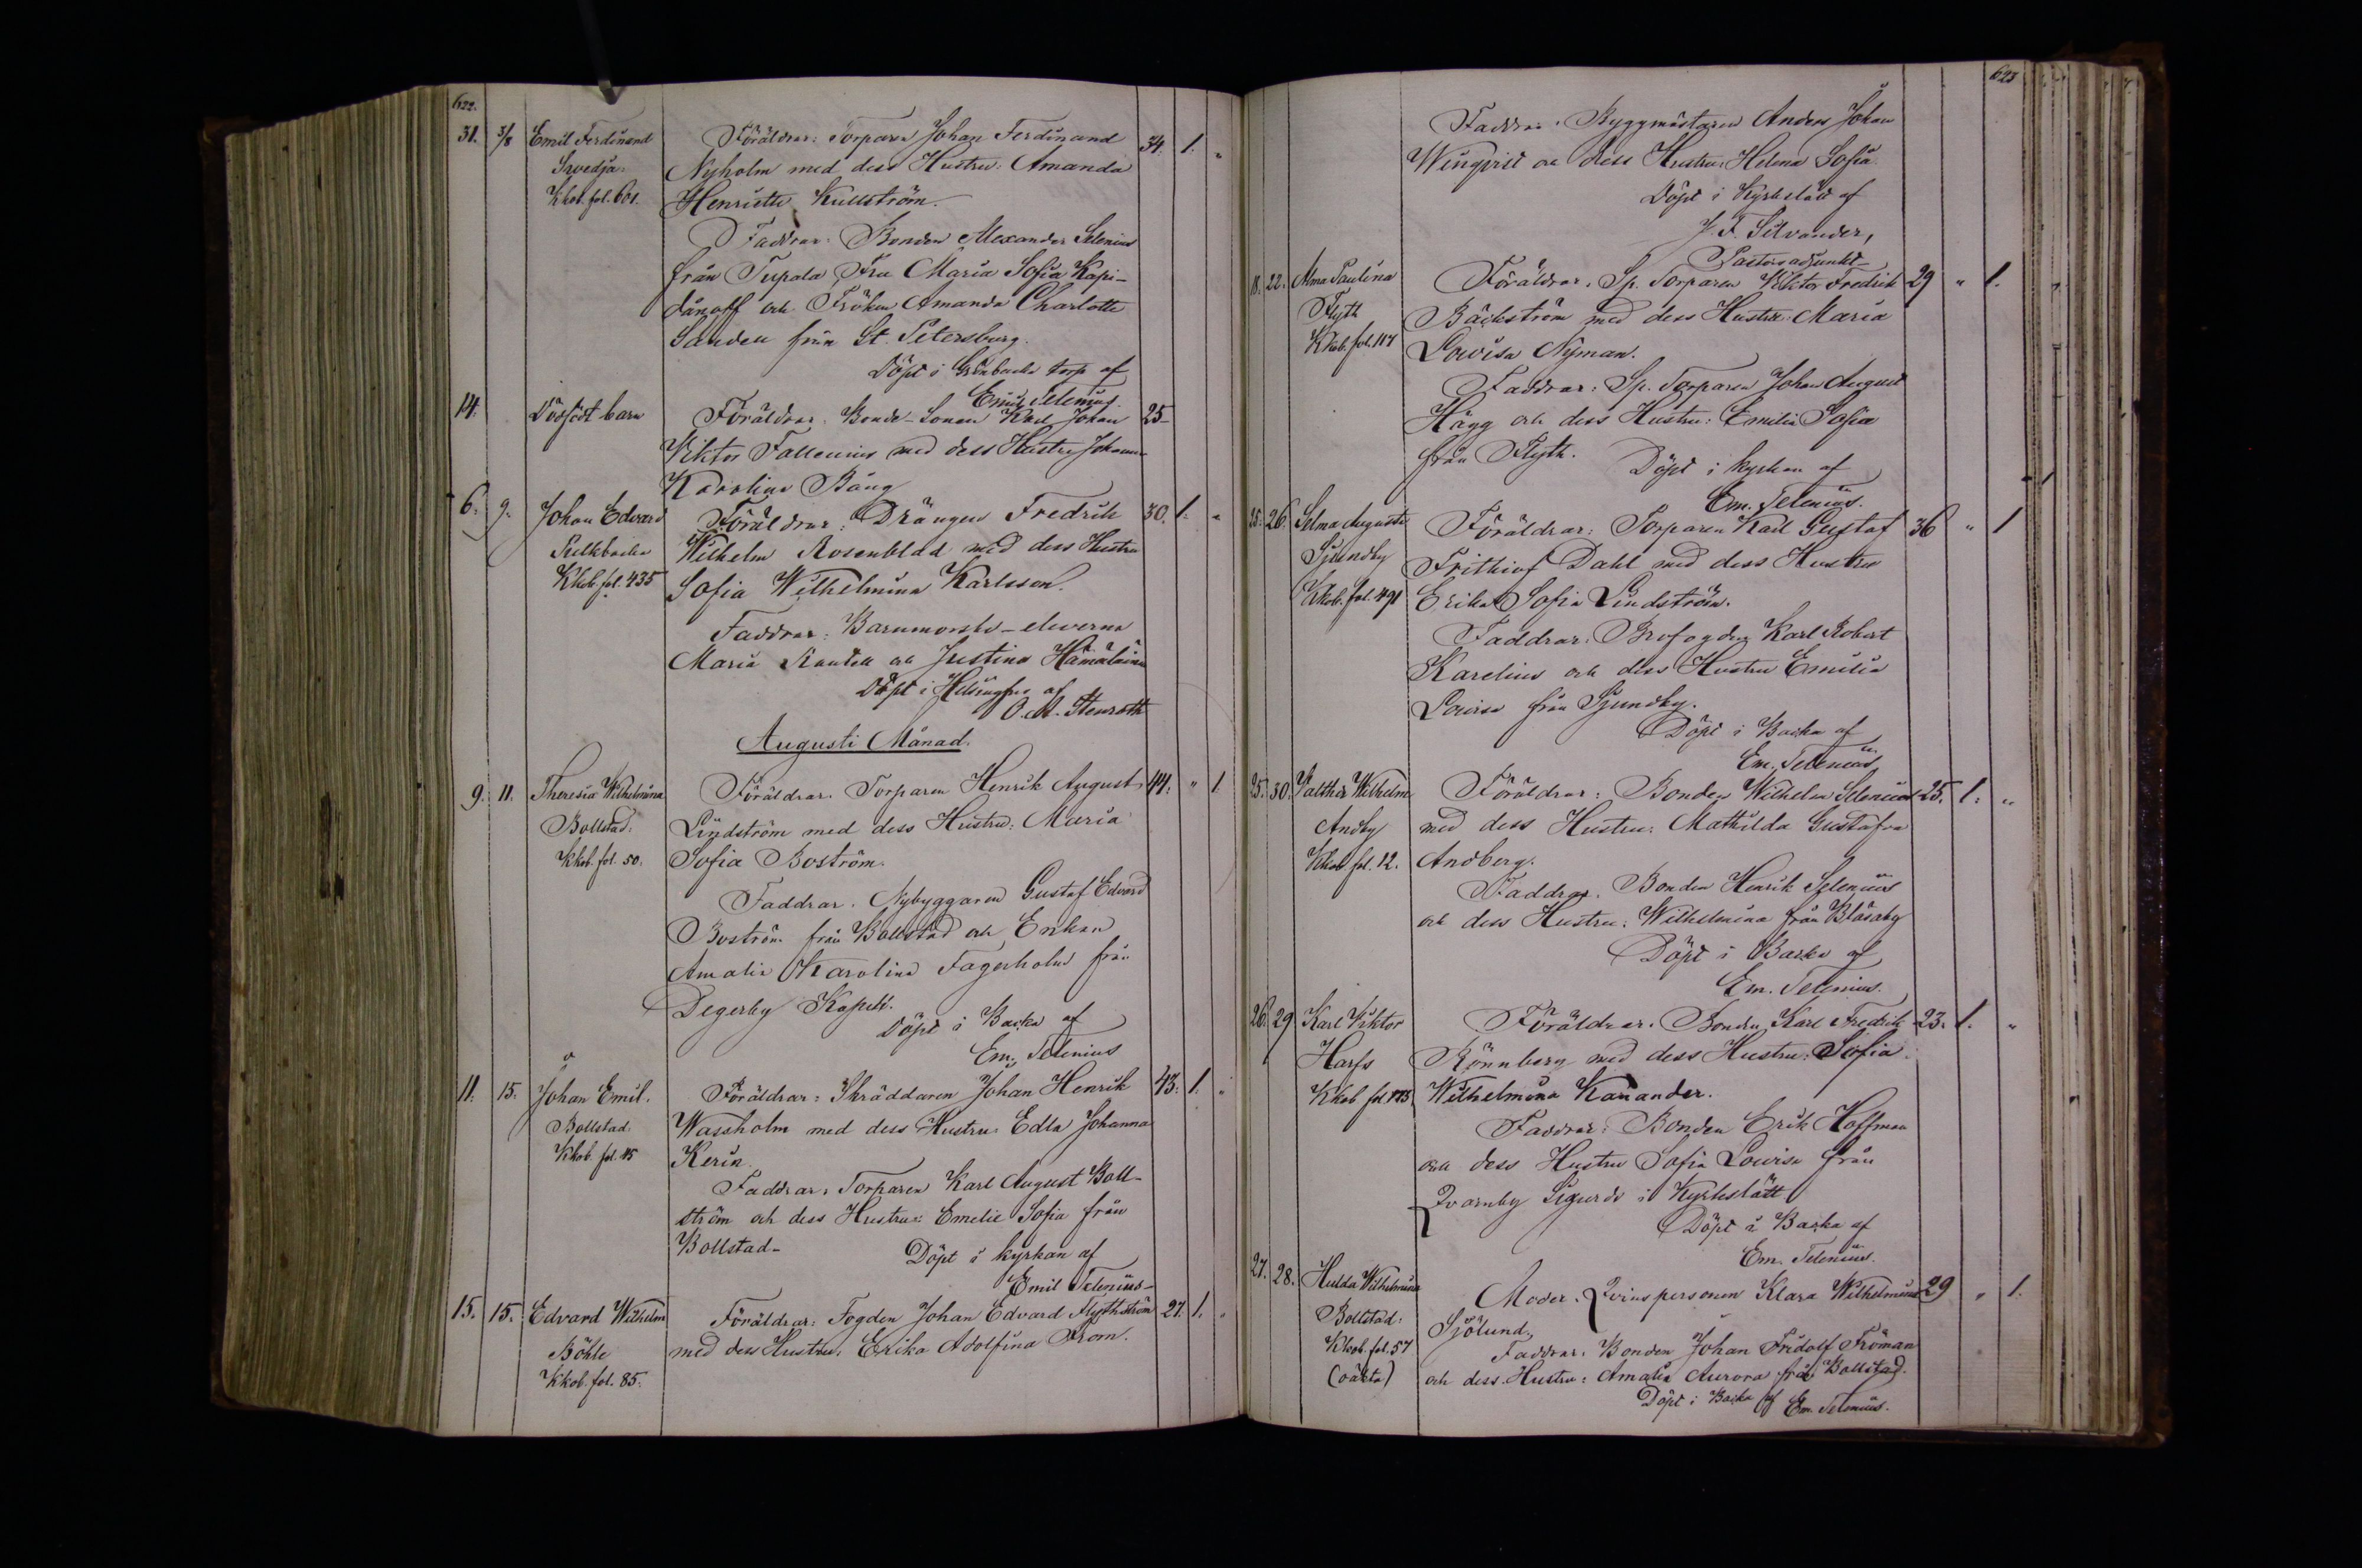 622.
31. 3/8 Emil Ferdinand Föräldrar: Torparen Johan Ferdinand 34. 1. "
Svedja. Nyholm med dess Hustru: Amanda
Kkob. fol. 601. Henriette Kullström.
Faddrar: Bonden Alexander Selenius
från Tupala, Fru Maria Sofia
och Fröken Amanda Charlotte
från St. Petersburg.
Döpt i torp af
Emil Telenius.
14. Dödfödt barn Föräldrar: Bonde-Sonen Karl Johan 25
Viktor Fallenius med dess Hustru Johanna
Karolina Bäng
6. 9. Johan Edvard Föräldrar: Drängen Fredrik 30. 1. "
Wilhelm Rosenblad med dess Hustru
Kkob. fol. 435 Sofia Wilhelmina Karlsson.
Faddrar: Barnmorske-eleverna
Maria och Justina Hämäläinen
Döpt i Helsingfors af
O. A. Stenroth
Augusti Månad.
9. 11. Theresia Wilhelmina Föräldrar. Torparen Henrik August 44. " 1.
Bollstad. Lindström med dess Hustru: Maria
Kkob. fol. 50. Sofia Boström.
Faddrar. Nybyggaren Gustaf Edvard
Boström från Bollstad och Enkan
Amalia Karolina Fagerholm från
Degerby Kapell.
Döpt i Backa af
Em. Telenius
11. 15. Johan Emil. Föräldrar: Skräddaren Johan Henrik 43. 1. "
Bollstad. Wassholm med dess Hustru: Edla Johanna
Kkob. fol. 45 Kerin.
Faddrar: Torparen Karl August Boll-
ström och dess Hustru: Emelie Sofia från
Bollstad-
Döpt i kyrkan af
Emil Telenius-
15. 15. Edvard Wilhelm Föräldrar: Fogden Johan Edvard Flythström 27. 1. "
Böhle med dess Hustru: Erika Adolfina From.
Kkob. fol. 85.
623
Faddrar. Byggmästaren Anders Johan
Winqvist och dess Hustru: Helena Sofia.
Döpt i Kyrkslätt af
J. F. Silvander,
Pastorsadjunkt-
18. 22. Alma Paulina Föräldrar. Sp. Torparen Viktor Fredrik 29 " 1.
Flyth Bäckström med dess Hustru: Maria
Kkob. fol. 117 Lowisa Nyman.
Faddrar: Sp. Torparen Johan August
Hägg och dess Hustru: Emilia Sofia
från Flyth. Döpt i kyrkan af
Em. Telenius.
25. 26. Selma Augusta Föräldrar: Torparen Karl Gustaf 36 " 1
Sjundby Frithiof Dahl med dess Hustru
Kkob. fol. 491 Erika Sofia Lindström.
Faddrar: Brofogden Karl Robert
Karelius och dess Hustru Emilia
Lowisa från Sjundby.
Döpt i Backa af
Em. Telenius
25. 30. Valther Wilhelm Föräldrar: Bonden Wilhelm Selenius 25. 1. "
Andby med dess Hustru: Mathilda Gustafva
Kkob. fol. 12. Andberg.
Faddrar. Bonden Henrik Selenius
och dess Hustru: Wilhelmina från Blåsaby
Döpt i Backa af
Em. Telenius.
26. 29 Karl Viktor Föräldrar. Bonden Karl Fredrik 23. 1. "
Harfs Rönnberg med dess Hustru: Sofia
Kkob fol. Wilhelmina Kananders.
Faddrar: Bonden Erik Hoffman
och dess Hustru Sofia Lowisa från
Qvarnby Sigurds i Kyrkslätt
Döpt i Backa af
Em. Telenius.
27. 28. Hulda Wilhelmina Moder. Qvinspersonen Klara Wilhelmina 29 " 1.
Bollstad: Sjölund.
Kkob. fol. 57 Faddrar. Bonden Johan Fridolf Fröman
(oäkta) och dess Hustru: Amalia Aurora från Bollstad.
Döpt i Backa af Em. Telenius.